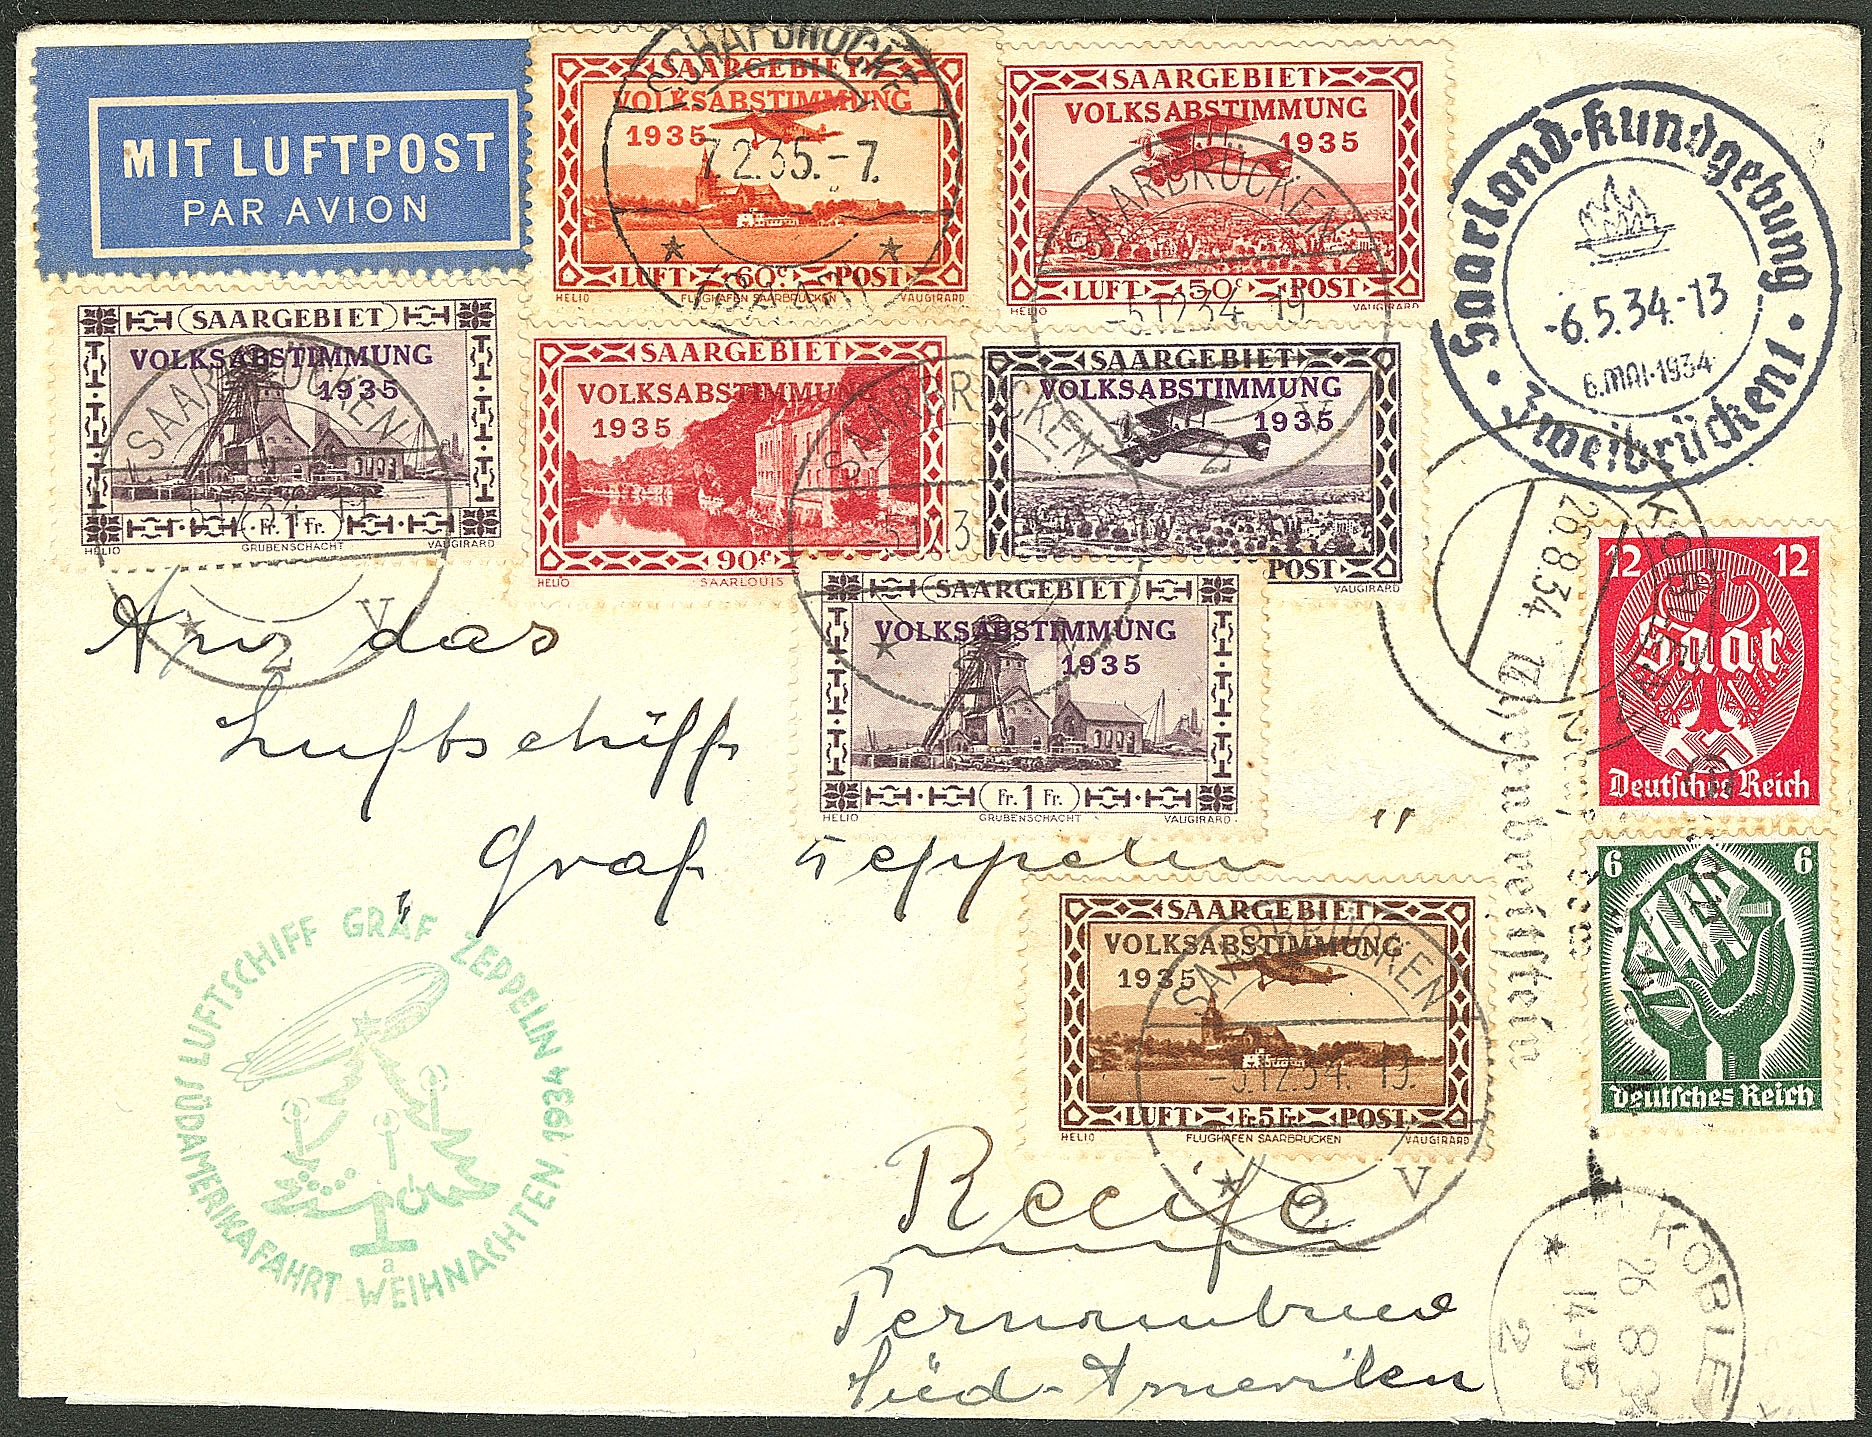 MIT LUFTPOST
PAR AVION
SAARGEBIET
VOLKSABSTIMMUNG
1935
LUFT 60c. POST
HELIO FLUGHAFEN SAARBRÜCKEN VAUGIRARD
7.2.35.-7.
SAARGEBIET
VOLKSABSTIMMUNG
1935
LUFT 50c. POST
HELIO VAUGIRARD
SAARBRÜCKEN
-5.12.34 19
2
Saarland-Kundgebung
-6.5.34.-13
6.MAI.1934
Zweibrücken1
SAARGEBIET
VOLKSABSTIMMUNG
1935
Fr. 1 Fr.
HELIO GRUBENSCHACHT VAUGIRARD
SAARBRÜCKEN
2 V
SAARGEBIET
VOLKSABSTIMMUNG
1935
90c.
HELIO SAARLOUIS
SAARBRÜCKEN
SAARGEBIET
VOLKSABSTIMMUNG
1935
POST
VAUGIRARD
SAARGEBIET
VOLKSABSTIMMUNG
1935
Fr. 1 Fr.
HELIO GRUBENSCHACHT VAUGIRARD
KOBLENZ
26.8.34
12 12
Saar
Deutsches Reich
6 6
SAAR
Deutsches Reich
An das
Luftschiff
"Graf Zeppelin"
SAARGEBIET
VOLKSABSTIMMUNG
1935
LUFT Fr.5Fr. POST
HELIO FLUGHAFEN SAARBRÜCKEN VAUGIRARD
SAARBRÜCKEN
-5.12.34. 19.
2 V
LUFTSCHIFF GRAF ZEPPELIN 1934
SÜDAMERIKAFAHRT WEIHNACHTEN
a
Recife
Pernambuco
Süd-Amerika
KOBLE
26 8
14-15
2